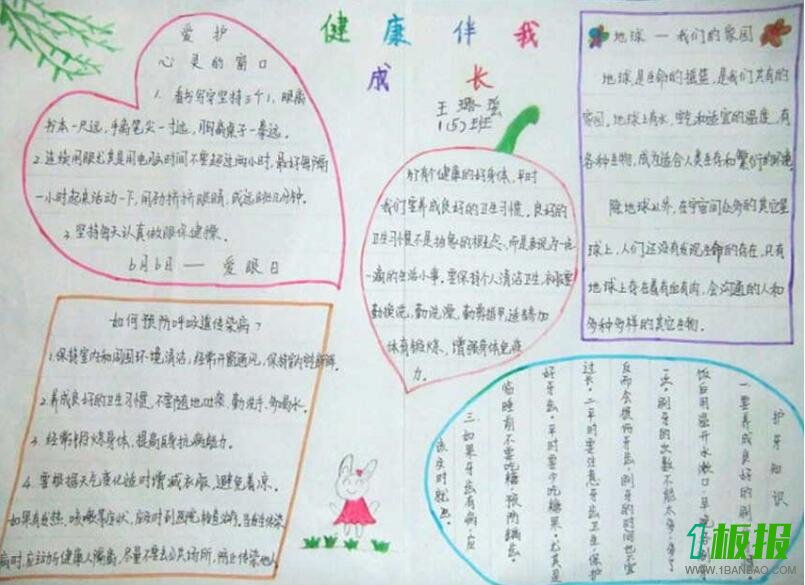 健康伴我
成长
王璐莹
1(5)班
爱护
心灵的窗口
1. 看书写字坚持三个1,眼离
书本一尺远,手离笔尖一寸远,胸离桌子一拳远。
2.连续用眼尤其是用电脑时间不要超过两小时,最好每隔
一小时起来活动一下,用劲挤挤眼睛,或远眺几分钟。
3.坚持每天认真做眼保健操。
6月6日——爱眼日
地球—我们的家园
地球是生命的摇篮,是我们共有的
家园。地球上有水,空气和适宜的温度,有
各种生物,成为适合人类生存和繁衍的环境。
除地球以外,在宇宙间众多的其它星
球上,人们还没有发现生命的存在,只有
地球上存在着有血有肉,会沟通的人和
多种多样的其它生物。
为了有个健康的好身体,平时
我们要养成良好的卫生习惯。良好的
卫生习惯不是抽象的概念,而是表现为一点
一滴的生活小事。要保持个人清洁卫生,
勤换洗、勤洗澡,勤剪指甲,适当参加
体育锻炼,增强身体免疫
力。
如何预防呼吸道传染病?
1.保持室内和周围环境清洁,经常开窗通风,保持室内空气新鲜。
2.养成良好的卫生习惯,不要随地吐痰、勤洗手、多喝水。
3.经常锻炼身体,提高自身抗病能力。
4.要根据天气变化适时增减衣服,避免着凉。
如果有发热、咳嗽等症状,应及时到医院检查治疗。当发生传染
病时,应主动与健康人隔离,尽量不要去公共场所,防止传染他人
护牙知识
一要养成良好的刷
饭后用温开水漱口,早晚各刷
一次。刷牙的次数不能太多,多了
反而会损伤牙齿,刷牙的时间也不宜
过长。二平时要注意牙齿卫生,保护
好牙齿。平时要少吃糖果。尤其是
临睡前不要吃糖,预防龋齿。
三如果牙齿有病,应
该及时就医。
1板报
WWW.1BANBAO.COM